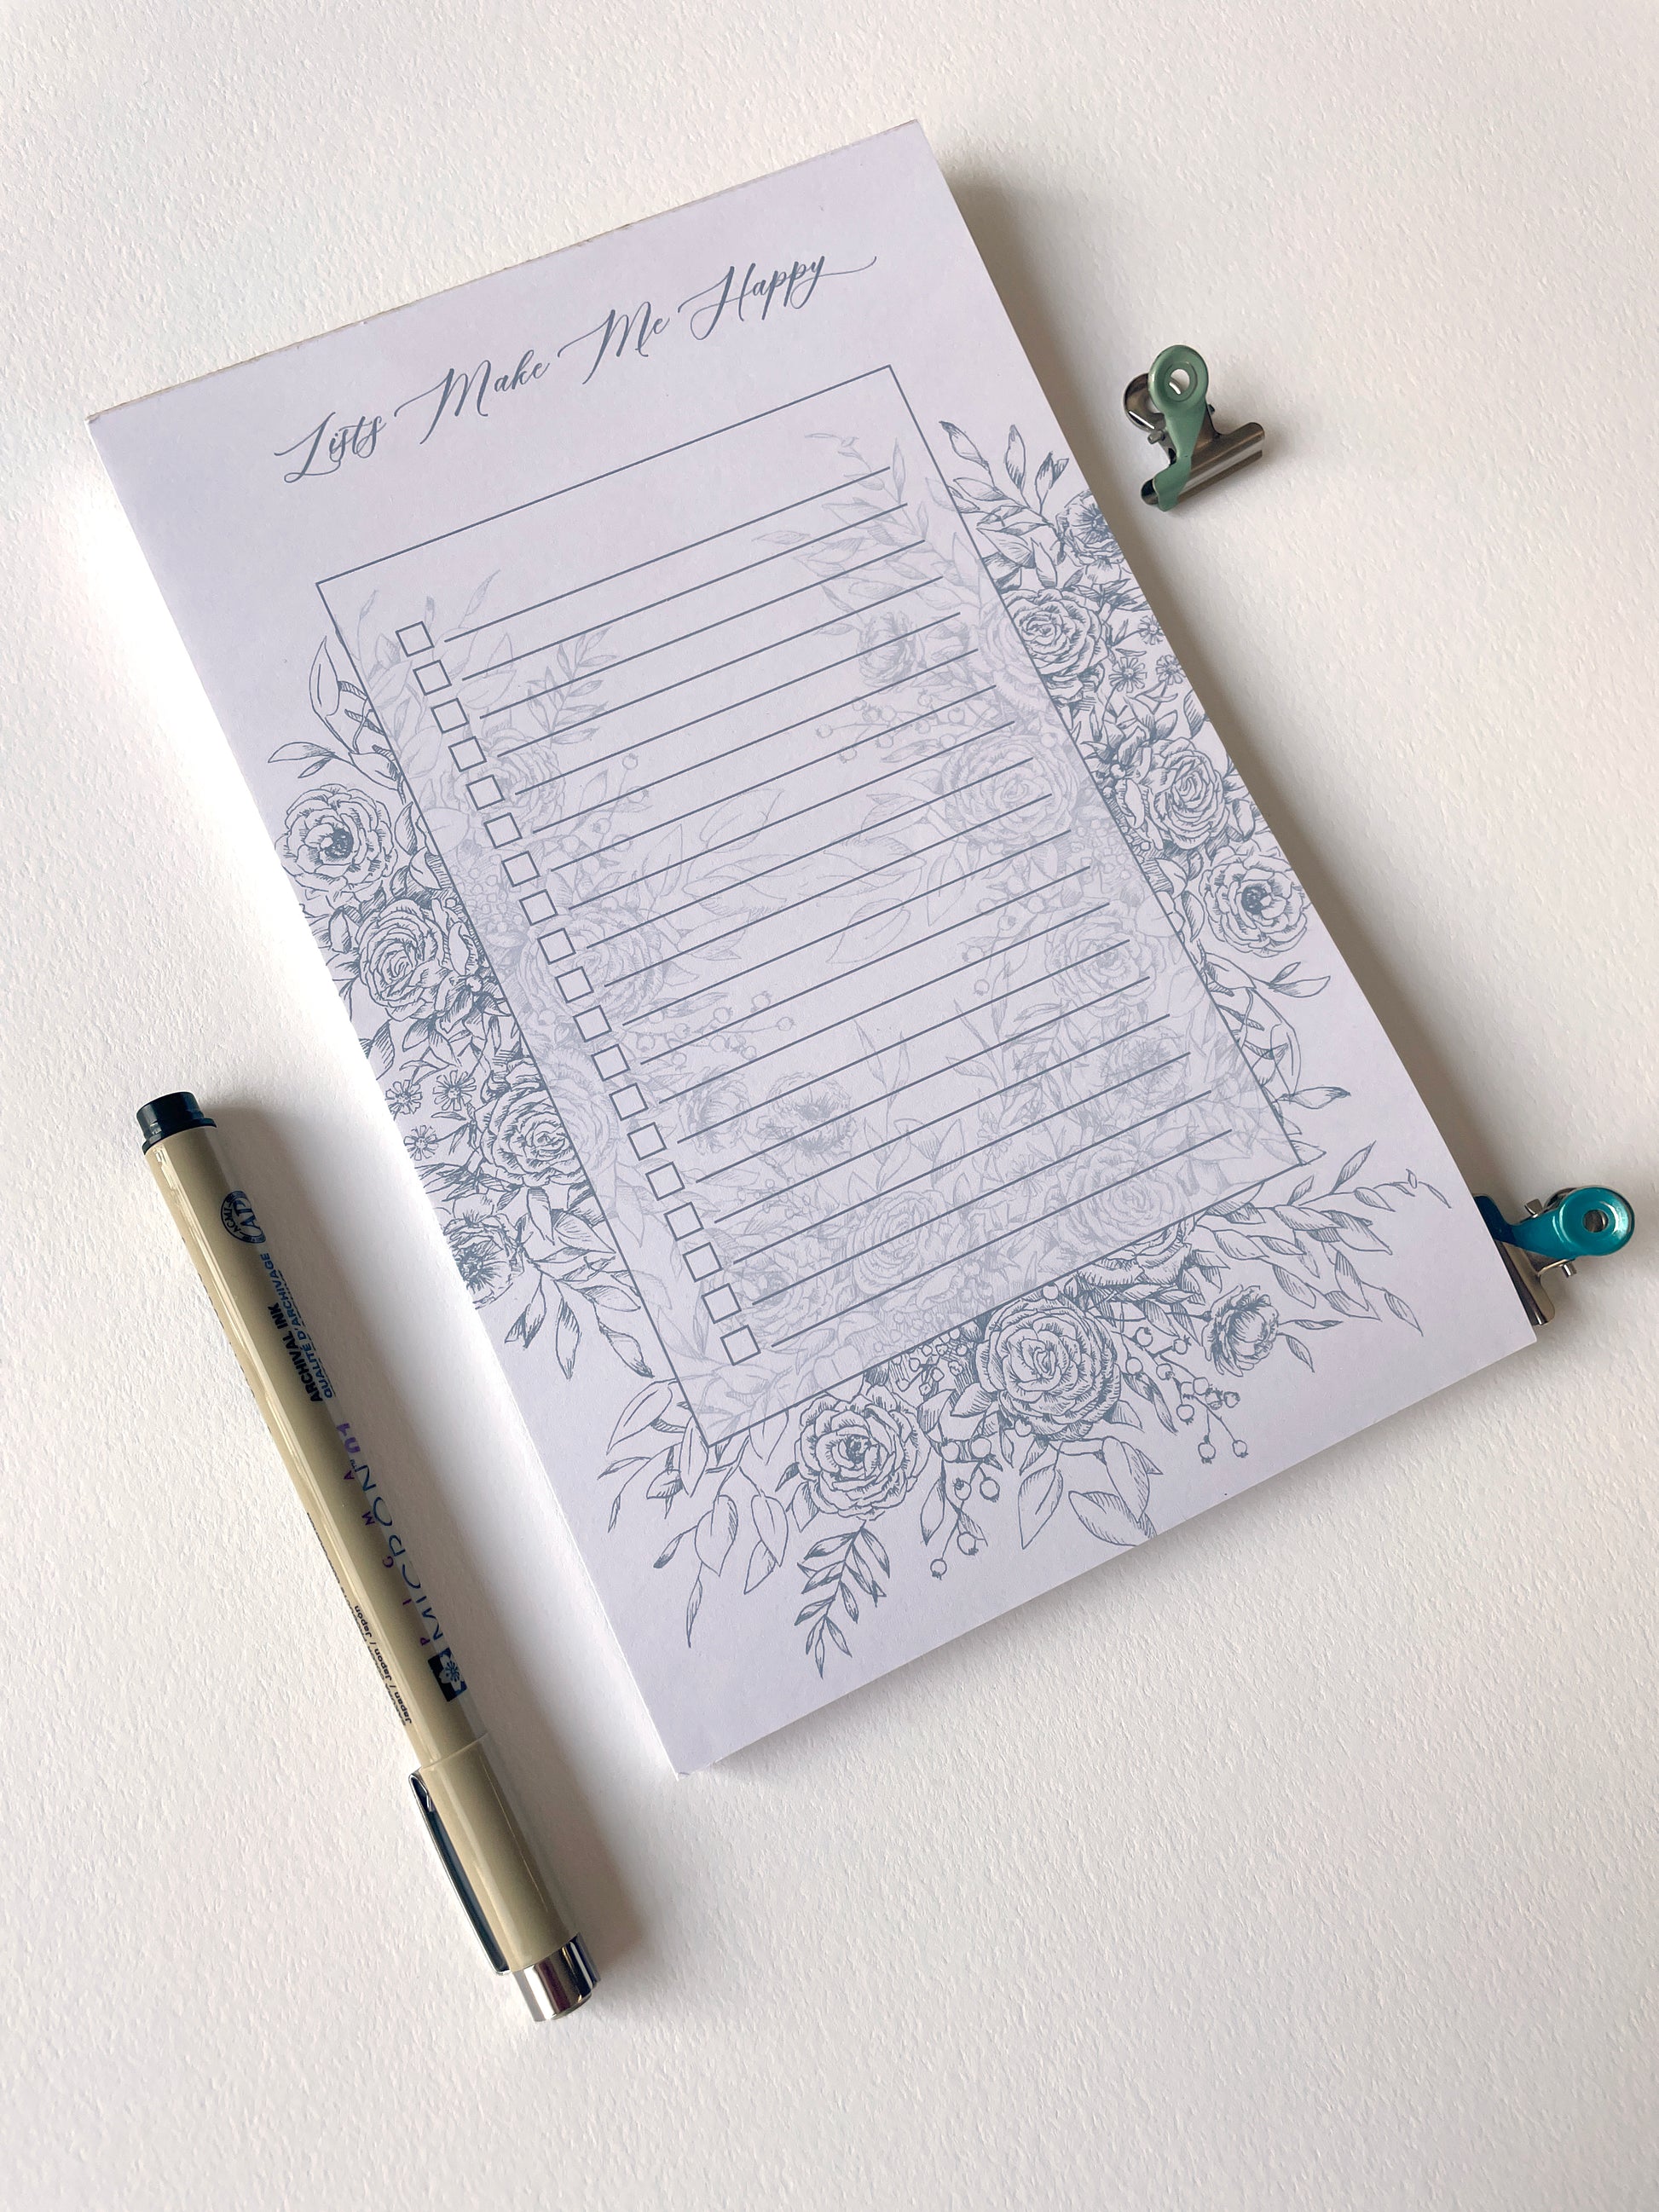 Lists Make Me Happy
ACMI
AP
ARCHIVAL INK
QUALITÉ D'ARCHIVAGE
PIGMA
MICRON™ 01
Japan / Japon / Japón